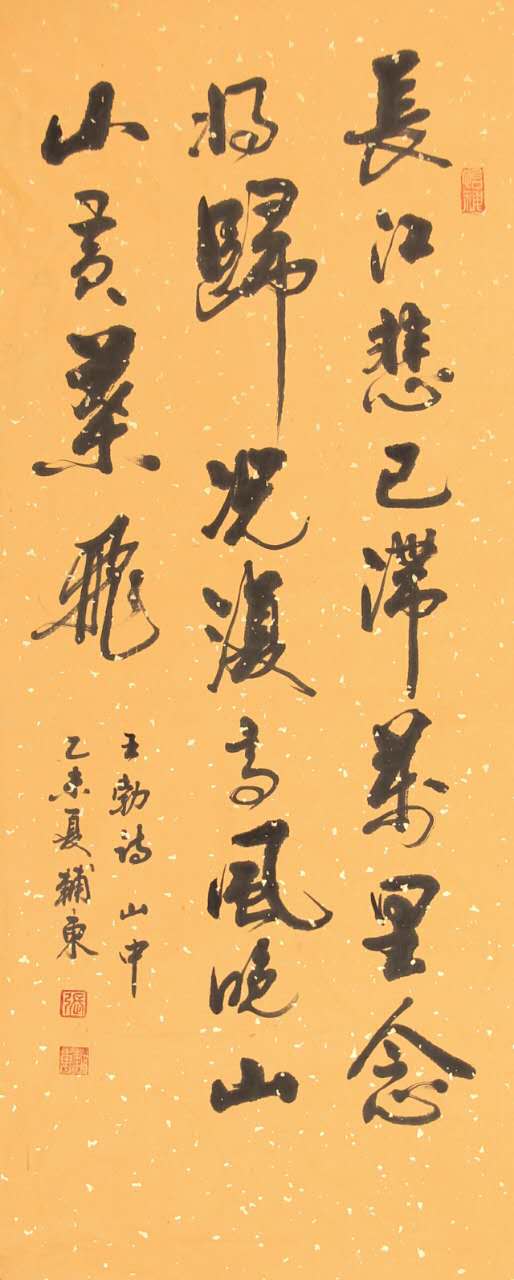 長江悲已滯萬里念
将歸况復高風晚山
山黄葉飛
王勃詩 山中
乙未夏輔東
張